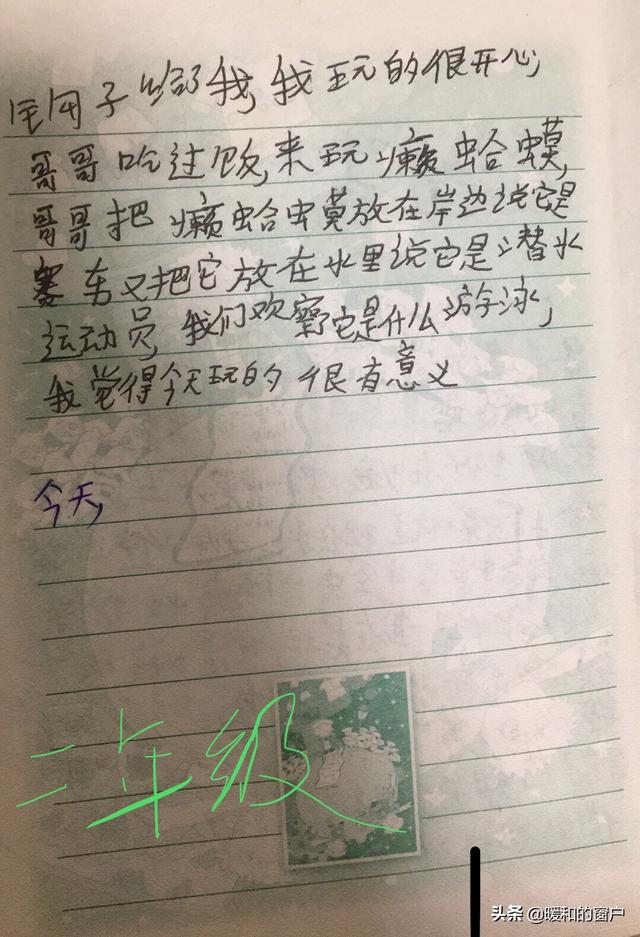 子给我,我玩的很开心,
哥哥吃过饭,来玩癞蛤蟆,
哥哥把癞蛤蟆放在岸边说它是
赛车又把它放在水里说它是潜水
运动员,我们观察它是什么游泳,
我觉得今天玩的很有意义
今天,
二年级
头条 @暖和的窗户